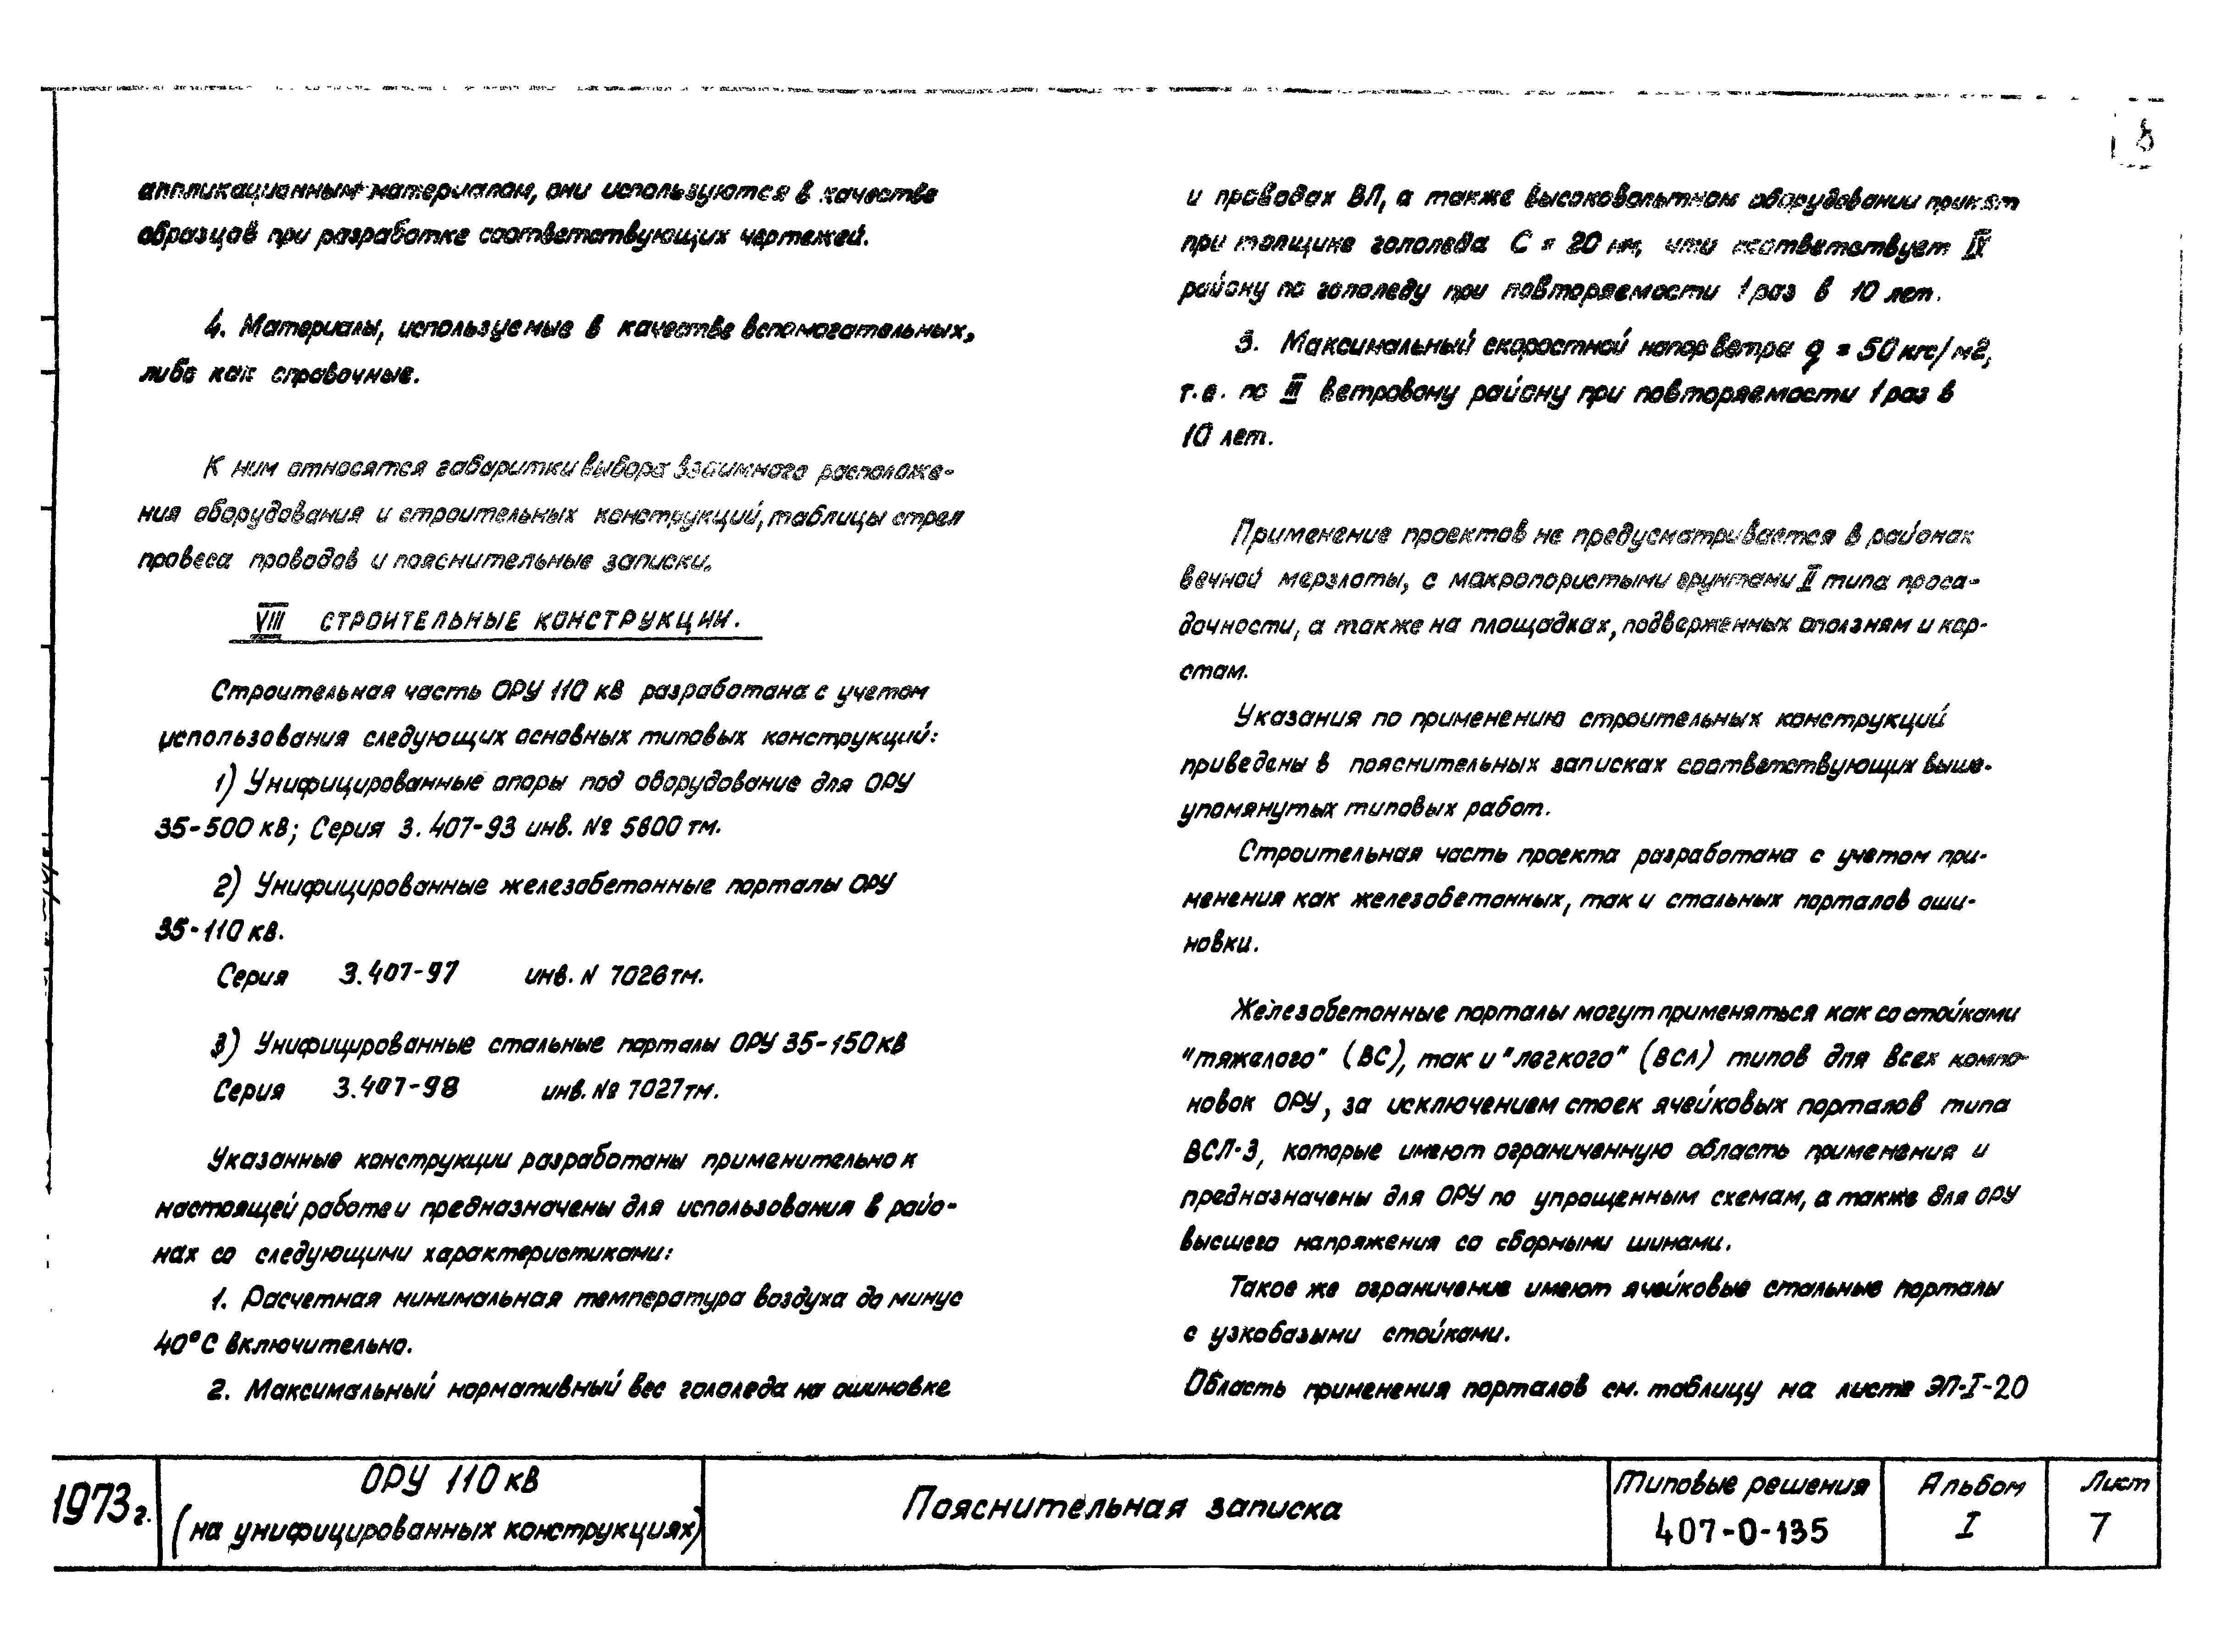 8
аппликационным материалом, они используются в качестве
образцов при разработке соответствующих чертежей.
4. Материалы, используемые в качестве вспомогательных,
либо как справочные.
К ним относятся габаритки выбора взаимного расположе-
ния оборудования и строительных конструкций, таблицы стрел
провеса проводов и пояснительные записки.
VIII СТРОИТЕЛЬНЫЕ КОНСТРУКЦИИ.
Строительная часть ОРУ 110 кВ разработана с учетом
использования следующих основных типовых конструкций:
1) Унифицированные опоры под оборудование для ОРУ
35-500 кВ; Серия 3.407-93 инв. № 5800 тм.
2) Унифицированные железобетонные порталы ОРУ
35-110 кВ.
Серия 3.407-97 инв. N 7026тм.
3) Унифицированные стальные порталы ОРУ 35-150 кВ
Серия 3.407-98 инв. № 7027тм.
Указанные конструкции разработаны применительно к
настоящей работе и предназначены для использования в райо-
нах со следующими характеристиками:
1. Расчетная минимальная температура воздуха до минус
40°С включительно.
2. Максимальный нормативный вес гололеда на ошиновке
и проводах ВЛ, а также высоковольтном оборудовании принят
при толщине гололеда С = 20 мм, что соответствует IV
району по гололеду при повторяемости 1 раз в 10 лет.
3. Максимальный скоростной напор ветра q = 50 кгс/м2,
т.е. по III ветровому району при повторяемости 1 раз в
10 лет.
Применение проектов не предусматривается в районах
вечной мерзлоты, с макропористыми грунтами II типа проса-
дочности, а также на площадках, подверженных оползням и кар-
стам.
Указания по применению строительных конструкций
приведены в пояснительных записках соответствующих выше-
упомянутых типовых работ.
Строительная часть проекта разработана с учетом при-
менения как железобетонных, так и стальных порталов оши-
новки.
Железобетонные порталы могут применяться как со стойками
"тяжелого" (ВС), так и "легкого" (ВСЛ) типов для всех компо-
новок ОРУ, за исключением стоек ячейковых порталов типа
ВСЛ-3, которые имеют ограниченную область применения и
предназначены для ОРУ по упрощенным схемам, а также для ОРУ
высшего напряжения со сборными шинами.
Такое же ограничение имеют ячейковые стальные порталы
с узкобазыми стойками.
Область применения порталов см. таблицу на листе ЭП-I-20
1973г.
ОРУ 110 кВ
(на унифицированных конструкциях)
Пояснительная записка
Типовые решения
407-0-135
Альбом
I
Лист
7